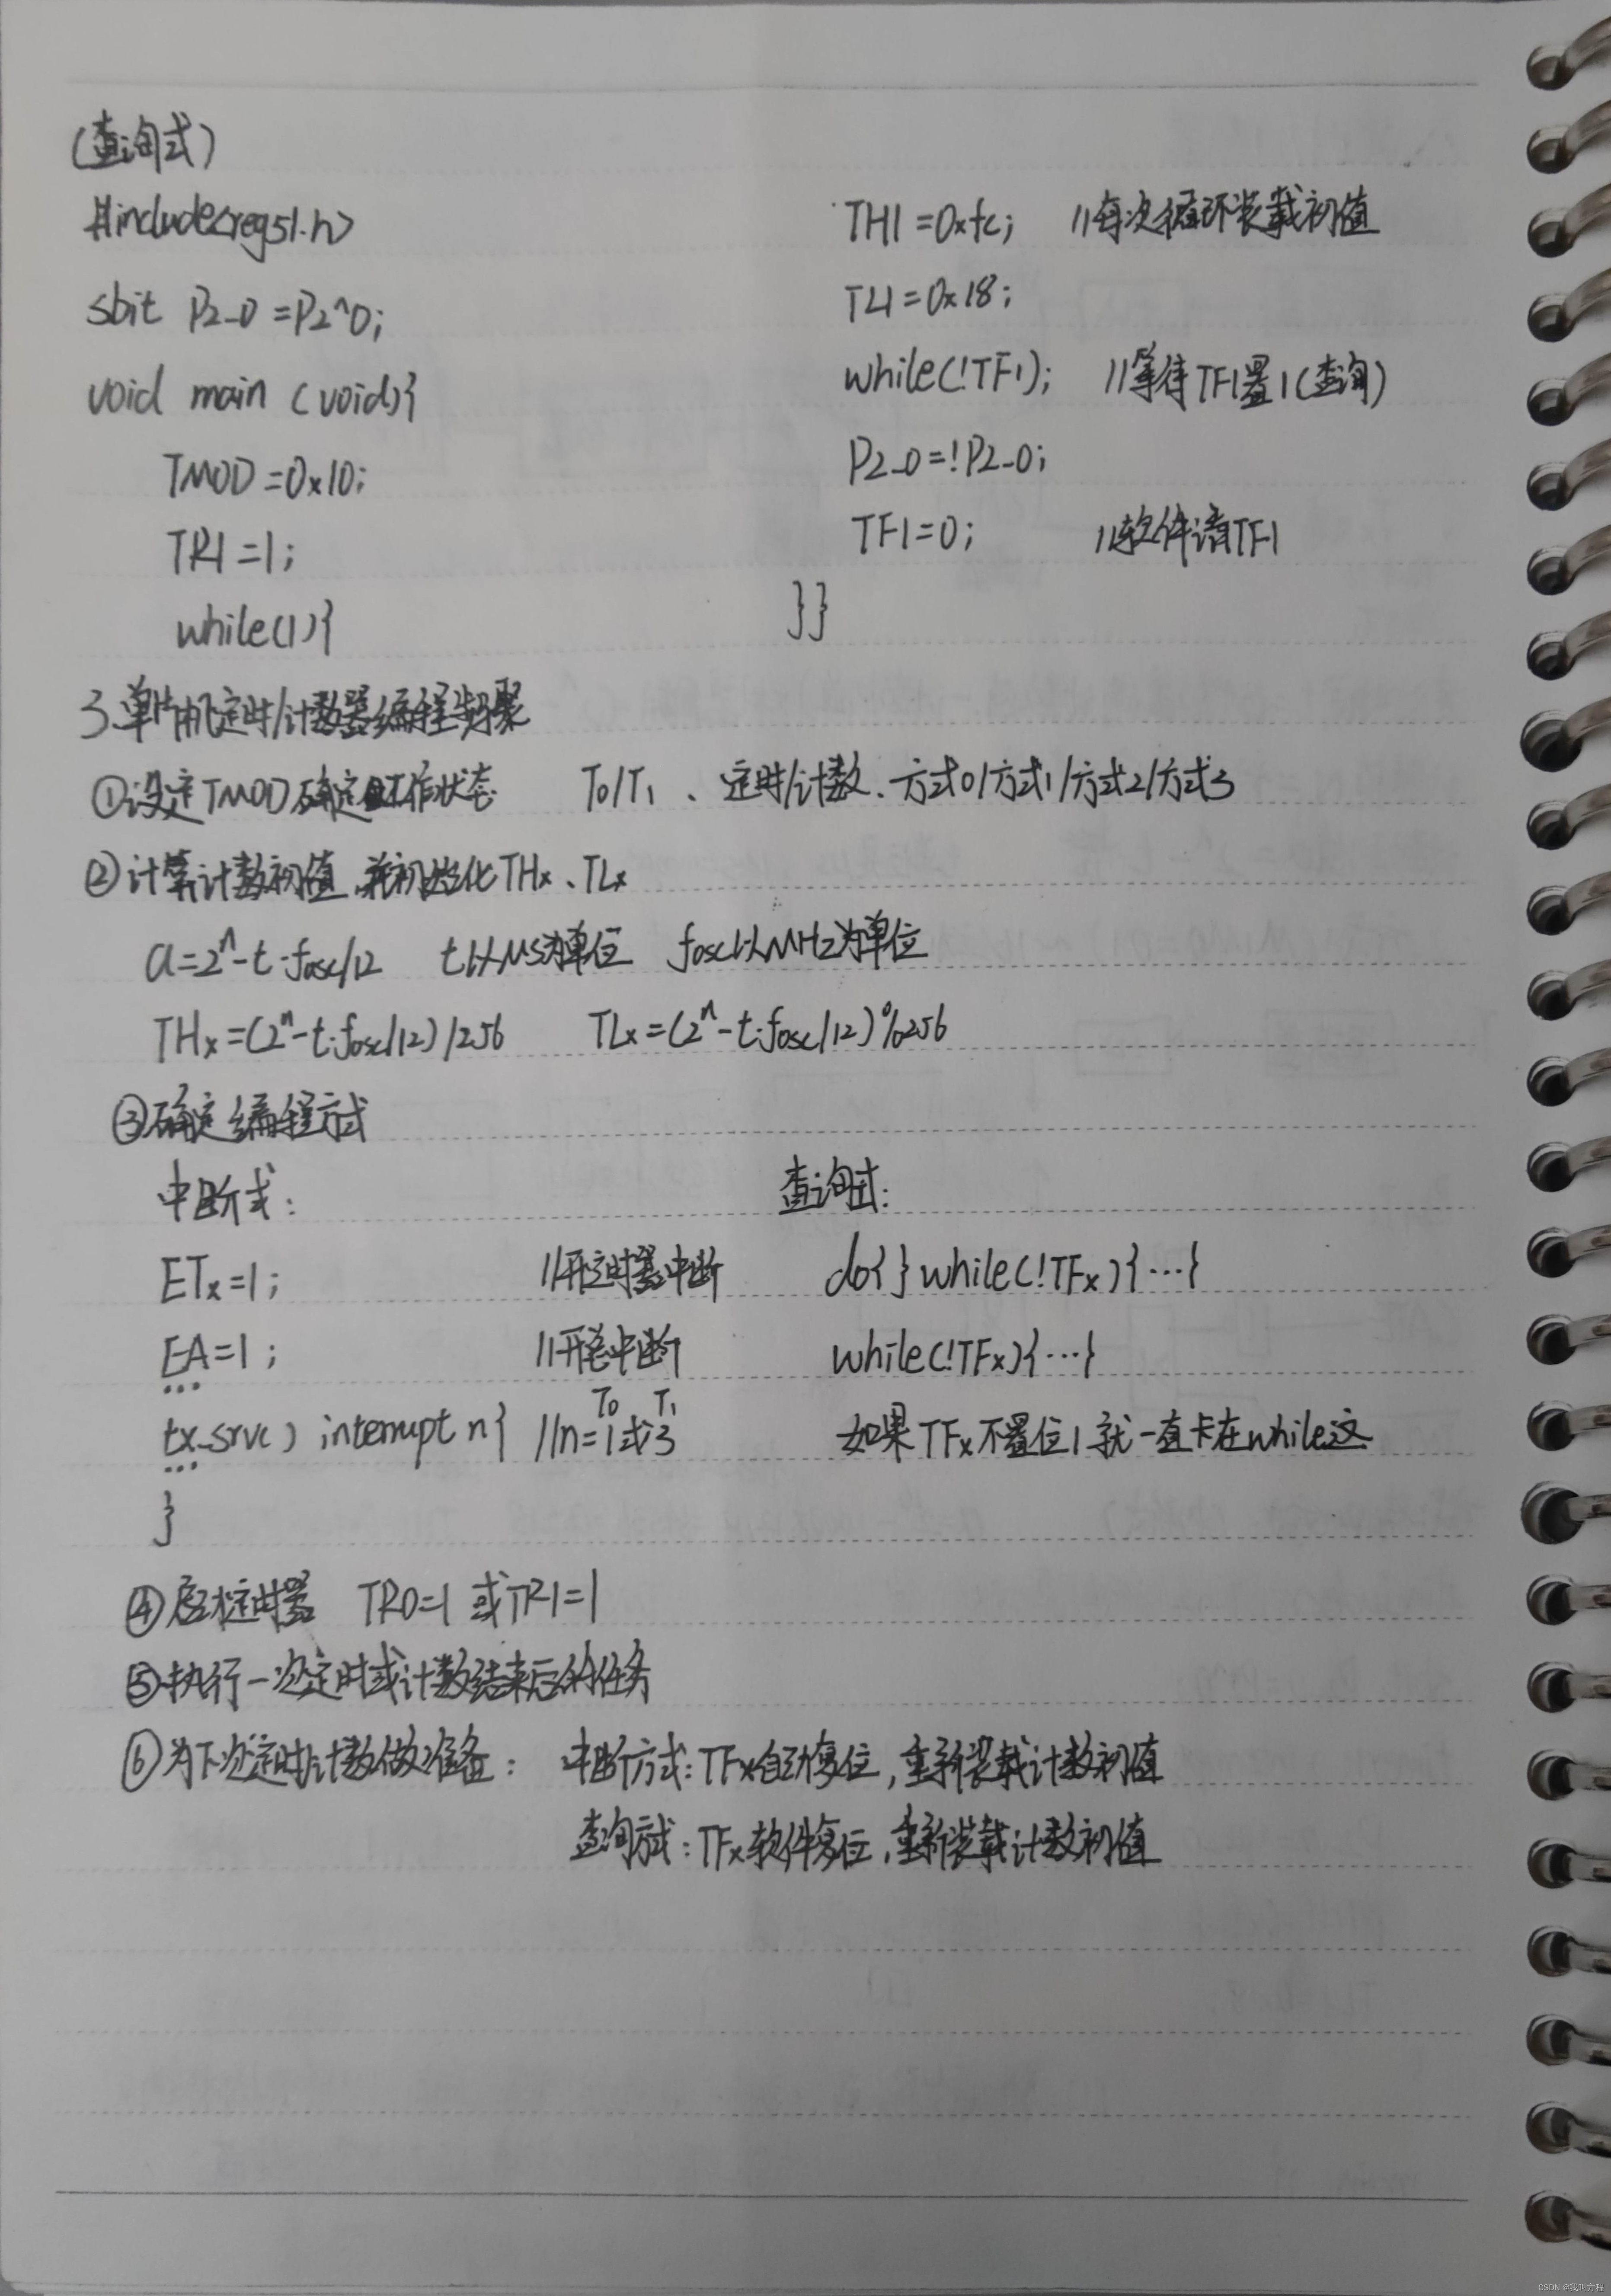 (查询式)
#include<reg51.h>
sbit P2_0=P2^0;
void main (void){
TMOD=0x10;
TR1=1;
while(1){
TH1=0xfc; //每次循环装载初值
TL1=0x18;
while(!TF1); //等待TF1置1(查询)
P2_0=!P2_0;
TF1=0; //软件清TF1
}}
3.单片机定时/计数器编程步骤
①设定TMOD确定工作状态 T0/T1、定时/计数、方式0/方式1/方式2/方式3
②计算计数初值,并初始化THx、TLx
a=2^n-t·fosc/12 t以μs为单位 fosc以MHz为单位
THx=(2^n-t·fosc/12)/256 TLx=(2^n-t·fosc/12)%256
③确定编程方式
中断式: 查询式:
ETx=1; //开定时器中断 do{}while(!TFx){…}
EA=1; //开总中断 while(!TFx){…}
…
T0 T1
tx_srv() interrupt n{ //n=1或3 如果TFx不置位1就一直卡在while这
…
}
④启动定时器 TR0=1或TR1=1
⑤执行一次定时或计数结束后的任务
⑥为下次定时/计数做准备: 中断方式:TFx自动复位,重新装载计数初值
查询方式:TFx软件复位,重新装载计数初值
CSDN @我叫方程